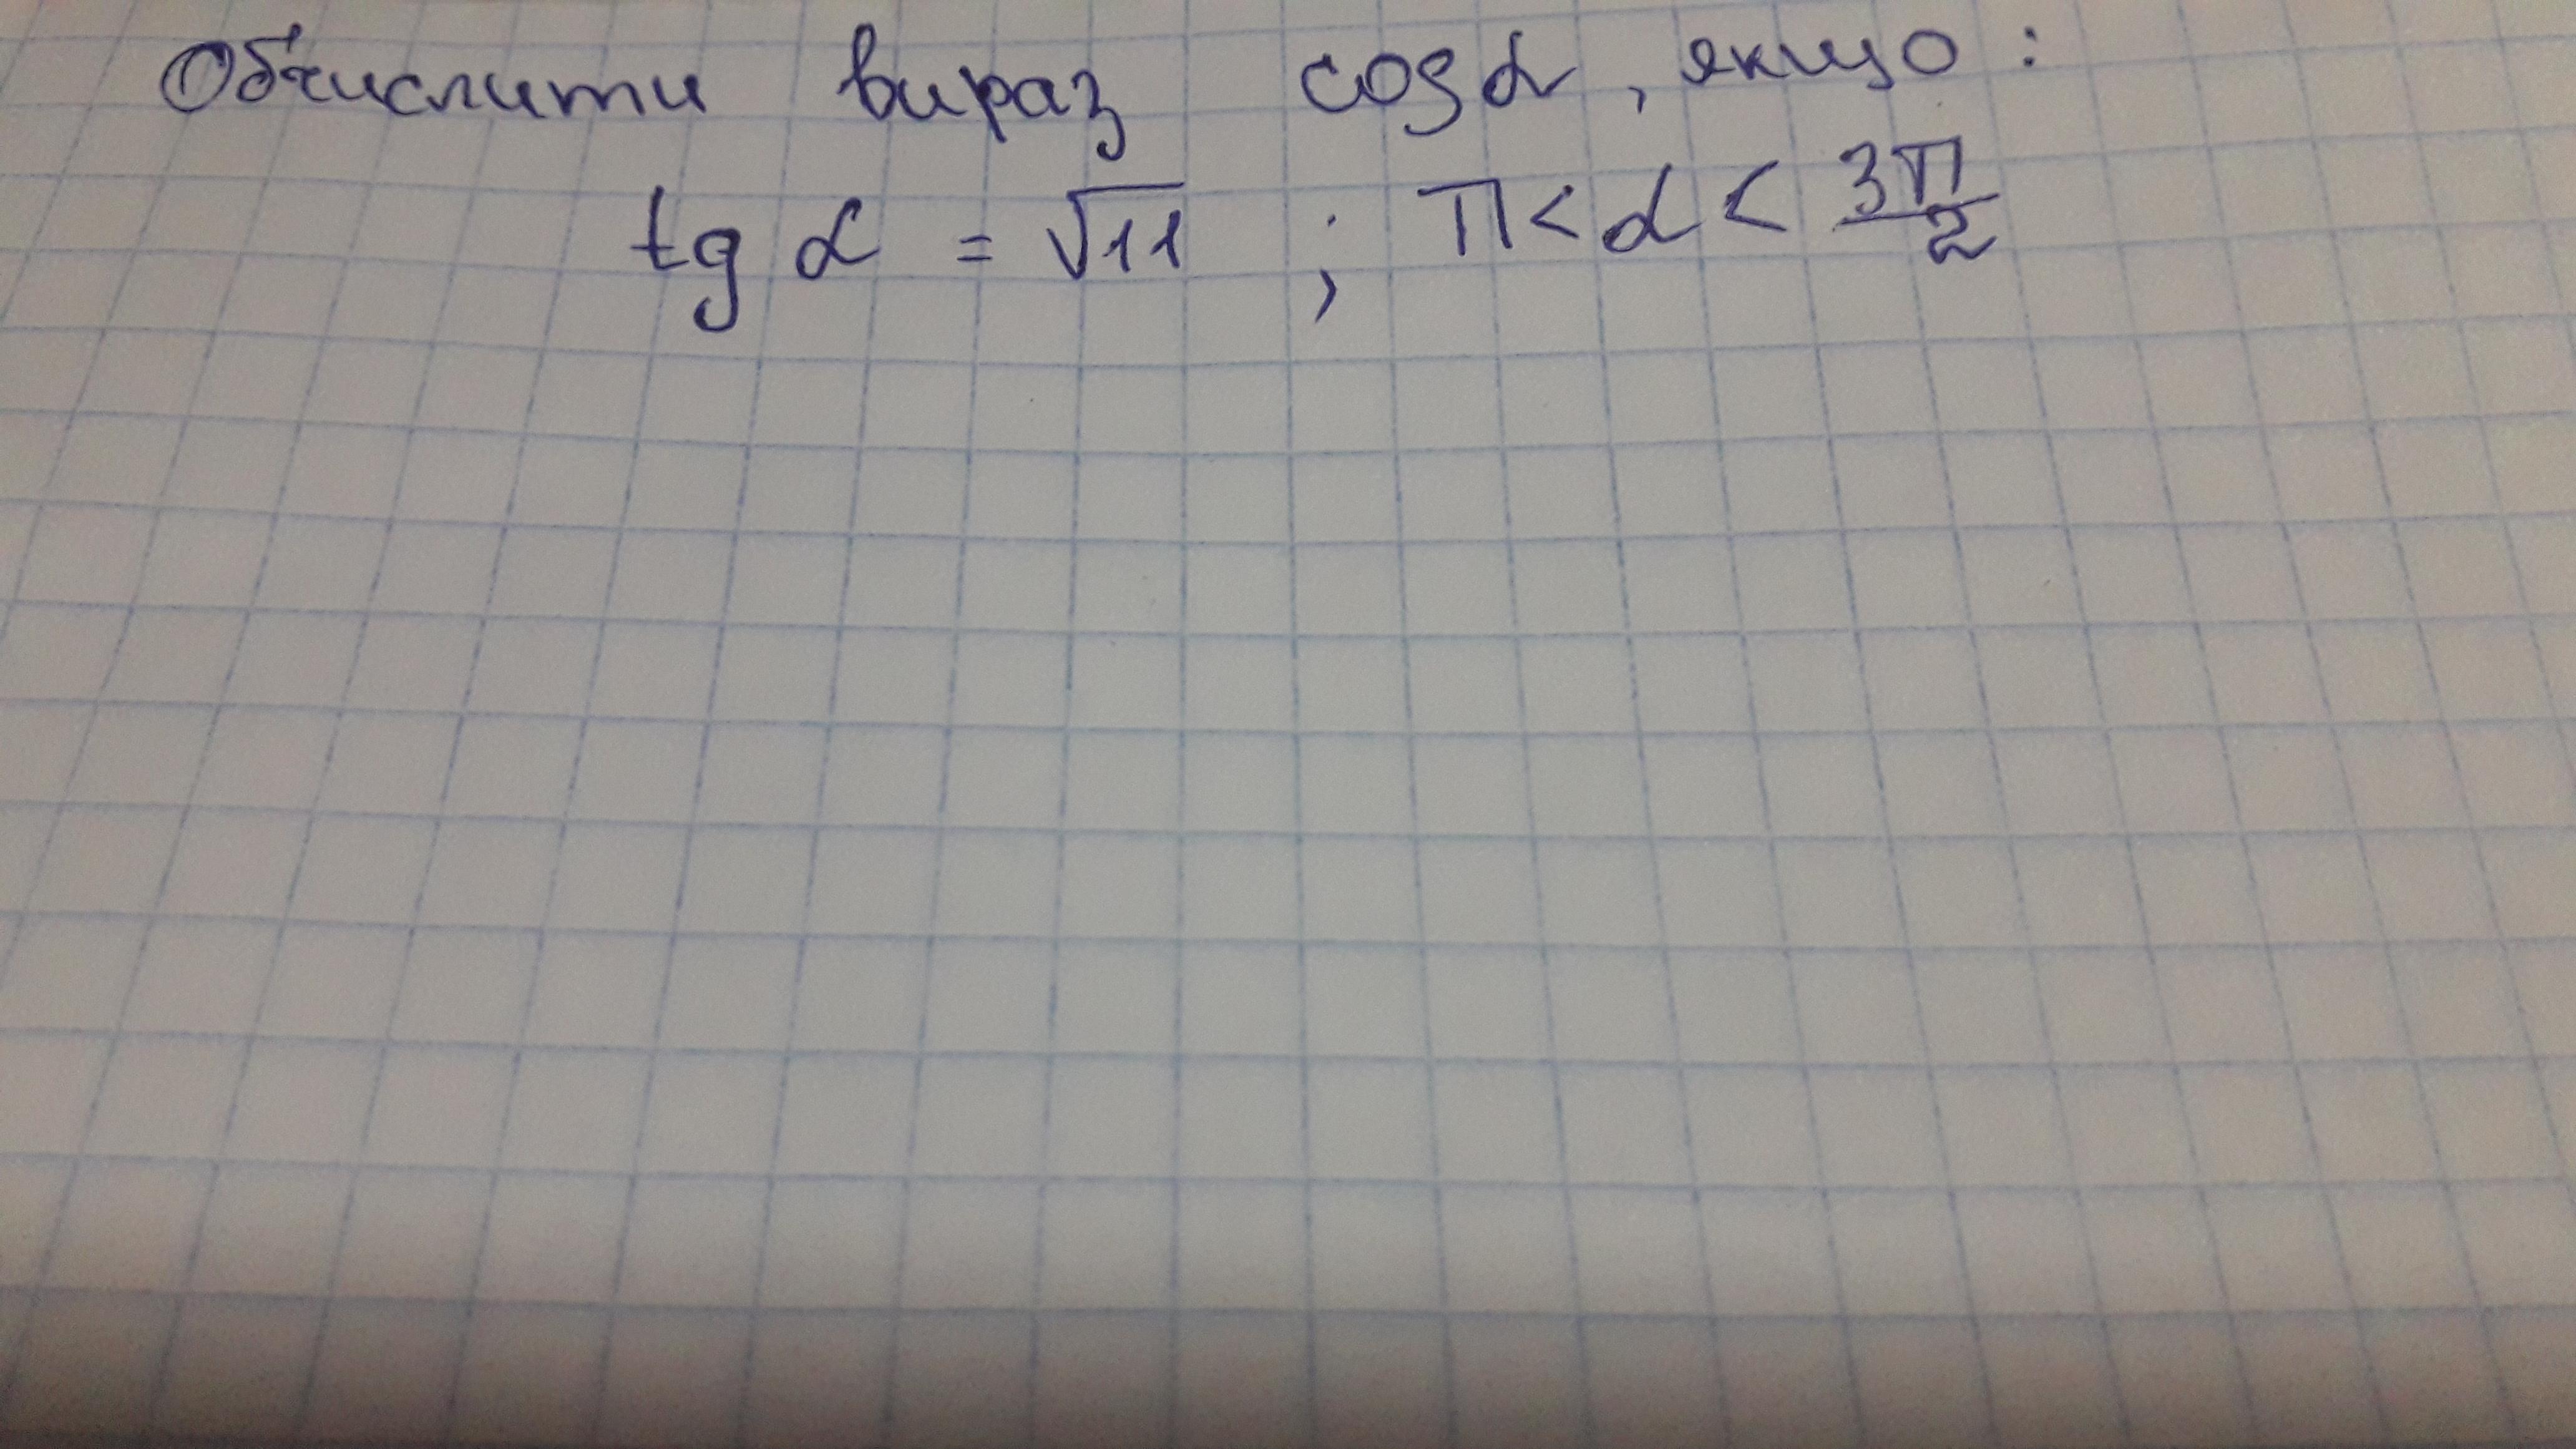 Обчислити вираз cos α, якщо:
tg α = √11 ; π < α < 3π/2